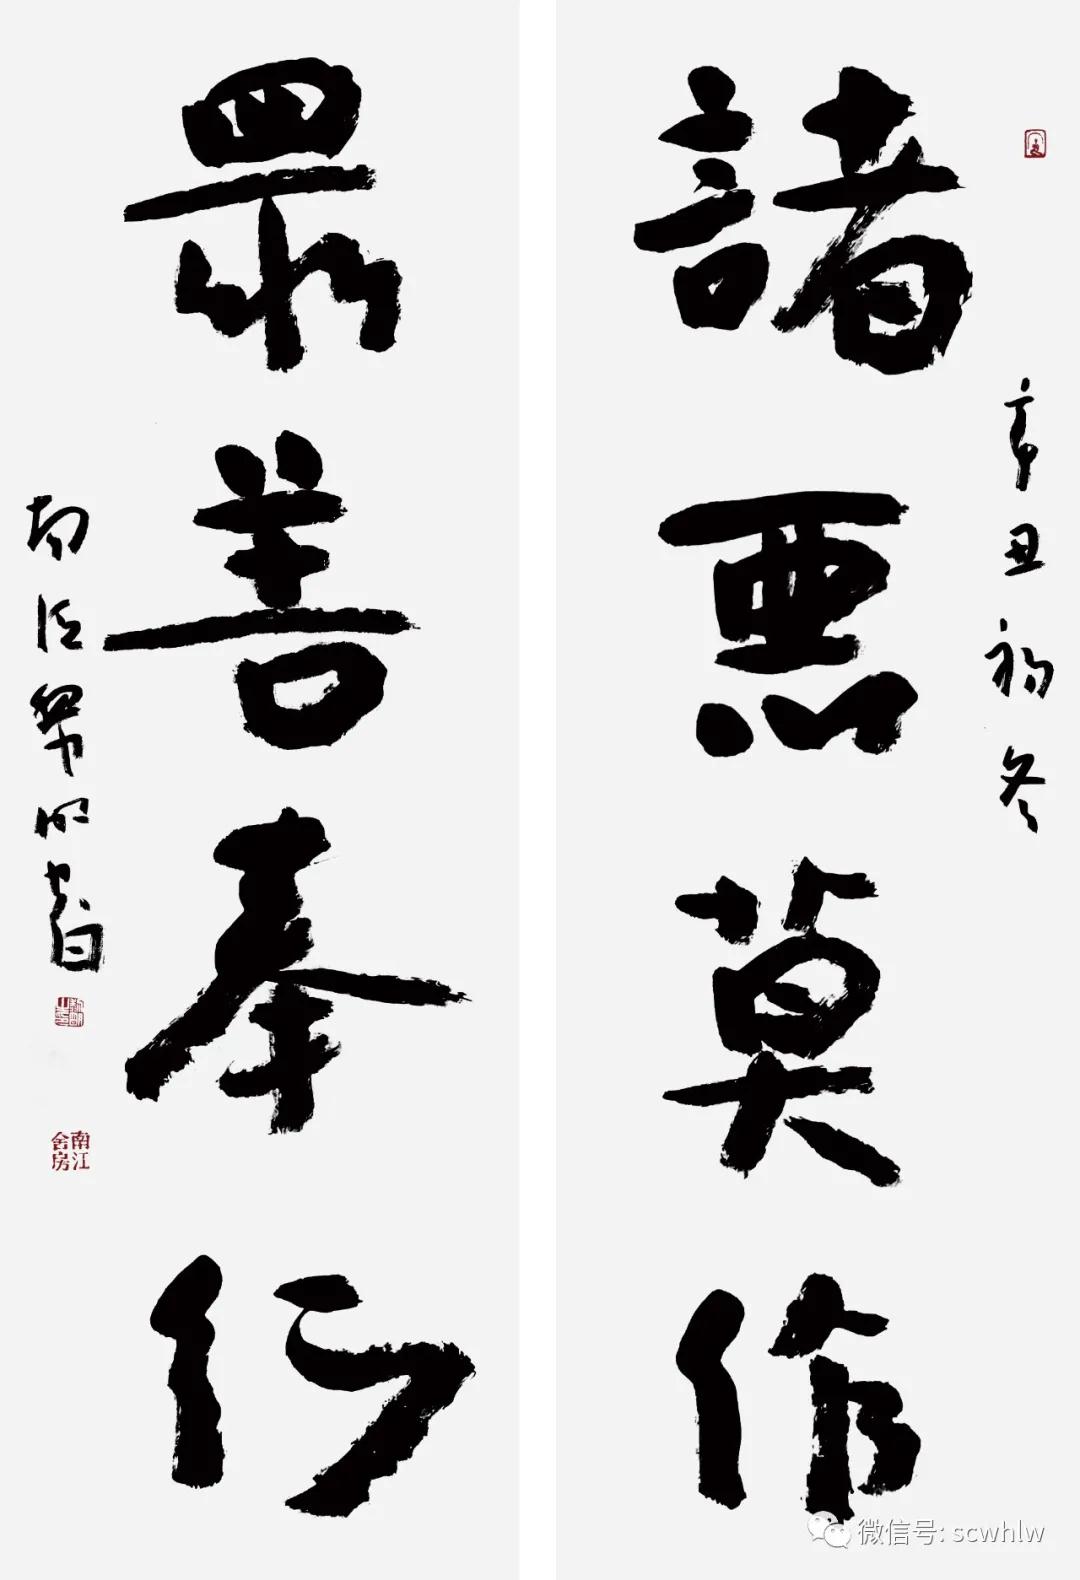 諸惡莫作
辛丑初冬
眾善奉行
南江黎明書
南江
舍房
微信号: scwhlw